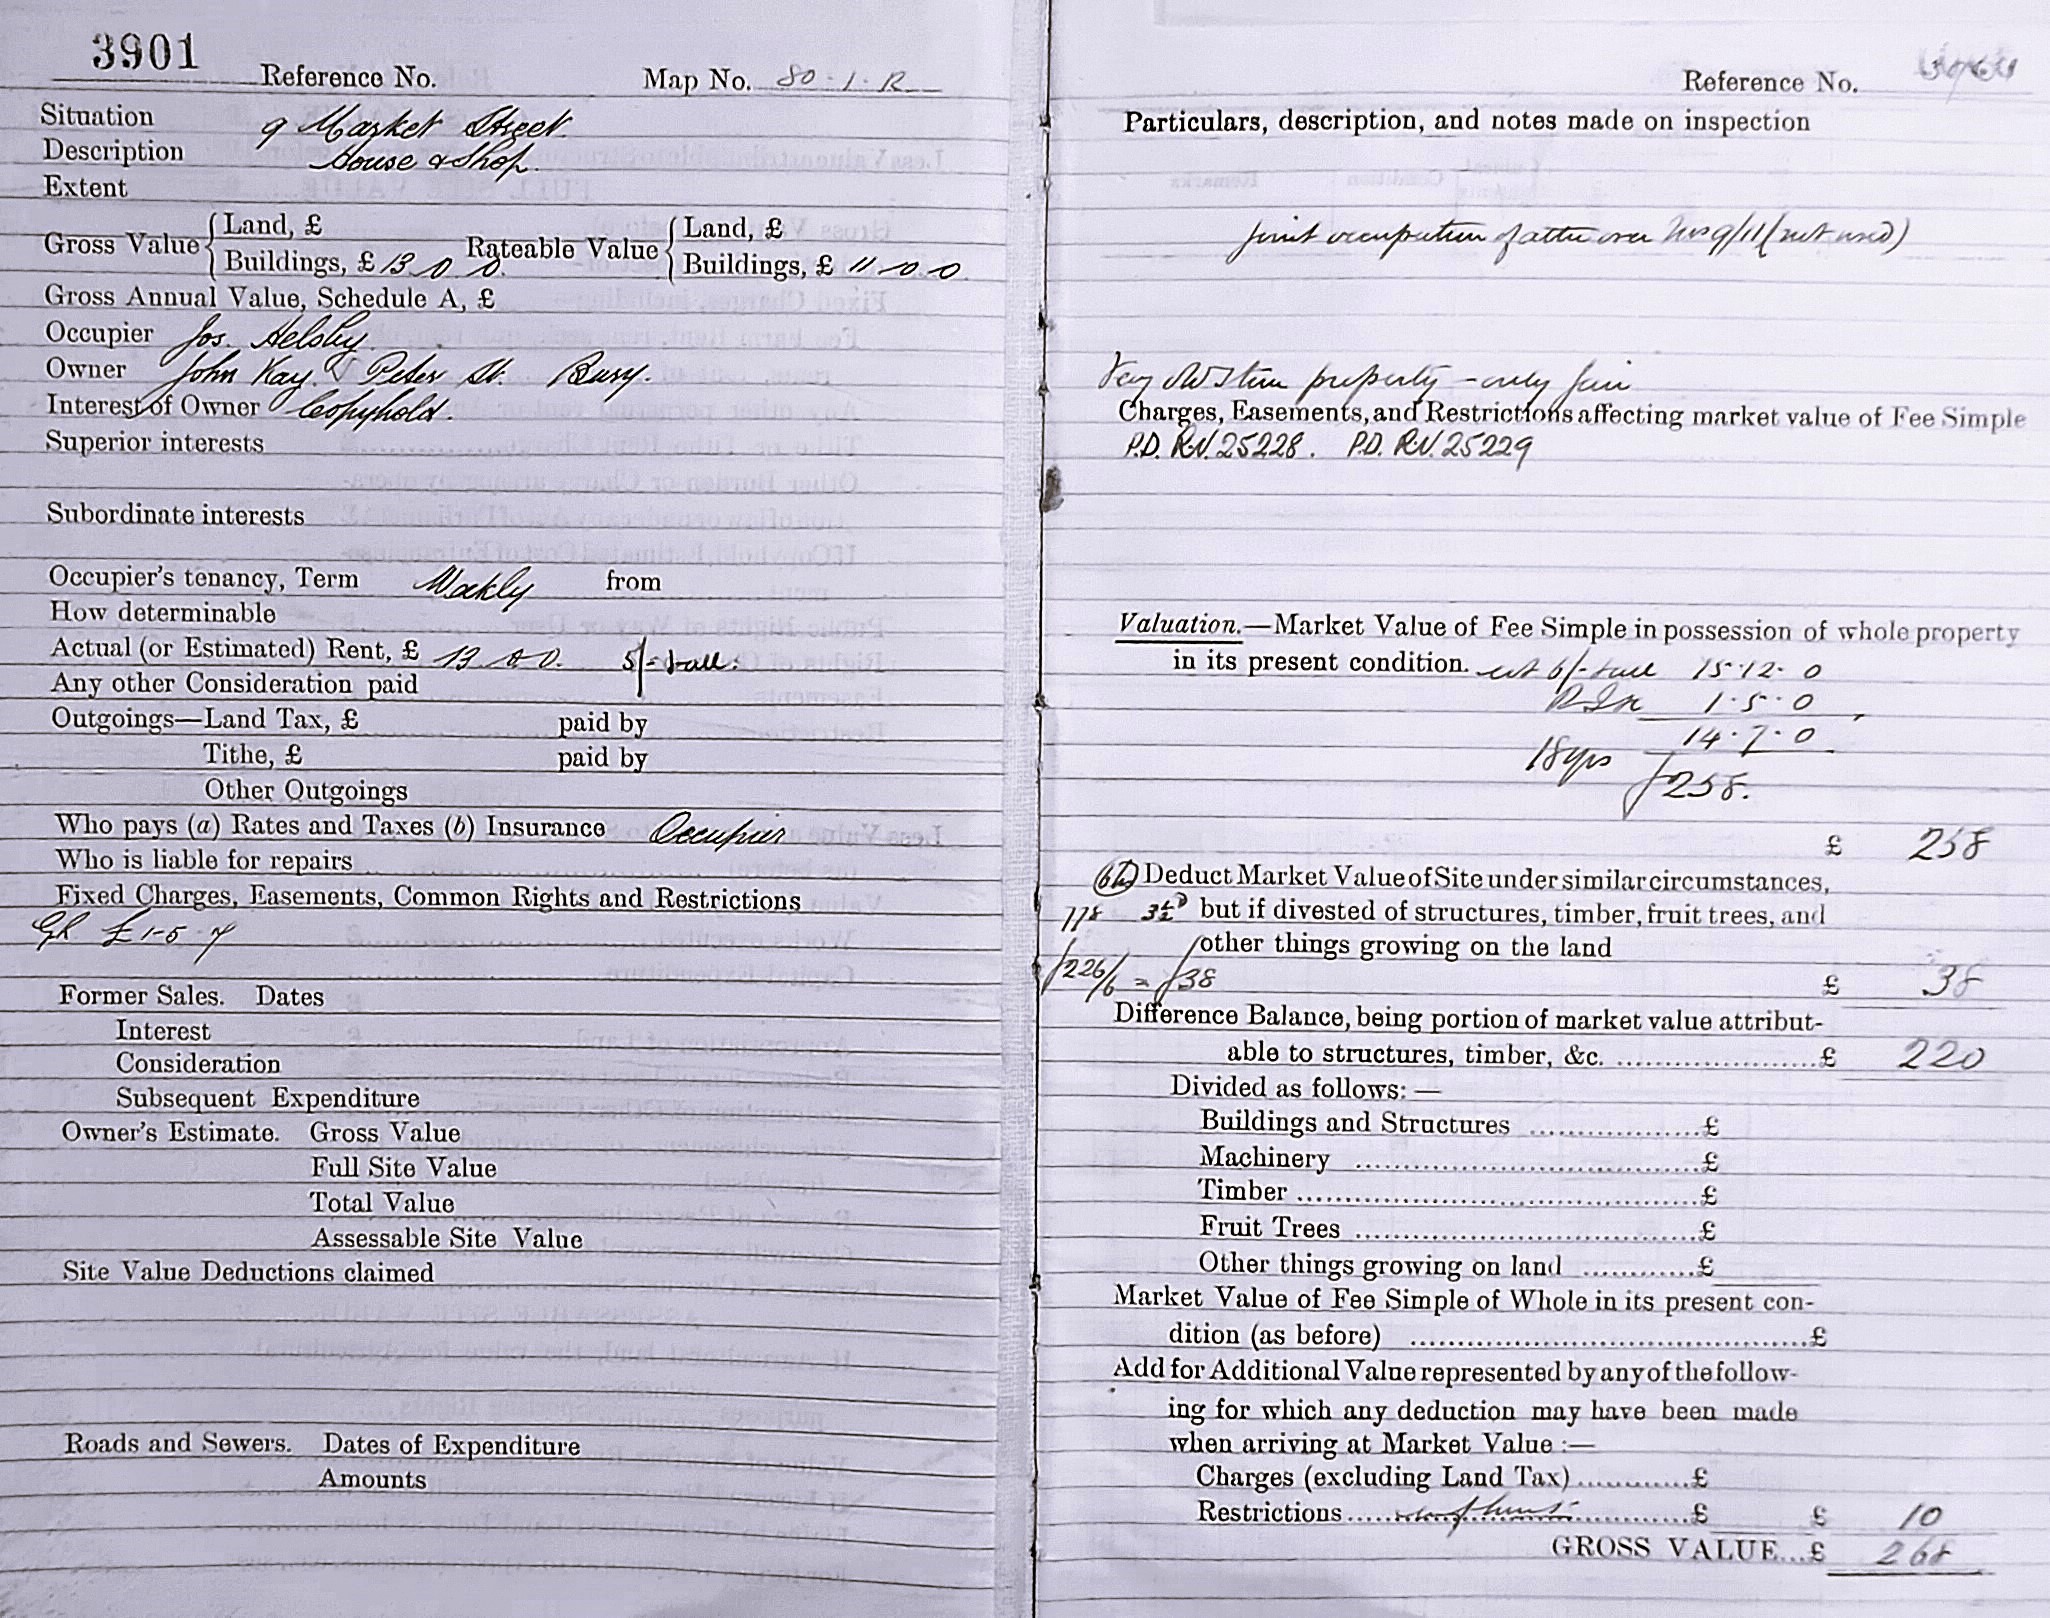 3901
Reference No. Map No. 80.1.R
Situation 9 Market Street
Description House & Shop.
Extent
Gross Value { Land, £ Rateable Value { Land, £
Buildings, £ 13 0 0. Buildings, £ 11 0 0
Gross Annual Value, Schedule A, £
Occupier Jos. Helsby.
Owner John Kay. Peter St. Bury.
Interest of Owner Copyhold.
Superior interests
Subordinate interests
Occupier's tenancy, Term Weekly from
How determinable
Actual (or Estimated) Rent, £ 13 0 0. 5/-
Any other Consideration paid
Outgoings—Land Tax, £ paid by
Tithe, £ paid by
Other Outgoings
Who pays (a) Rates and Taxes (b) Insurance Occupier
Who is liable for repairs
Fixed Charges, Easements, Common Rights and Restrictions
£1-5-7
Former Sales. Dates
Interest
Consideration
Subsequent Expenditure
Owner's Estimate. Gross Value
Full Site Value
Total Value
Assessable Site Value
Site Value Deductions claimed
Roads and Sewers. Dates of Expenditure
Amounts
Reference No.
Particulars, description, and notes made on inspection
Joint occupation of attic over Nos 9/11 (not used)
Very old property - only fair
Charges, Easements, and Restrictions affecting market value of Fee Simple
P.D. R.V. 25228. P.D. R.V. 25229
Valuation.—Market Value of Fee Simple in possession of whole property
in its present condition. 6/- 15.12.0
1.5.0
14.7.0
18 yrs £258.
£ 258
Deduct Market Value of Site under similar circumstances,
778 but if divested of structures, timber, fruit trees, and
other things growing on the land
£226/6 = £38 £ 38
Difference Balance, being portion of market value attribut-
able to structures, timber, &c. £ 220
Divided as follows: —
Buildings and Structures £
Machinery £
Timber £
Fruit Trees £
Other things growing on land £
Market Value of Fee Simple of Whole in its present con-
dition (as before) £
Add for Additional Value represented by any of the follow-
ing for which any deduction may have been made
when arriving at Market Value :—
Charges (excluding Land Tax) £
Restrictions £ £ 10
GROSS VALUE...£ 268